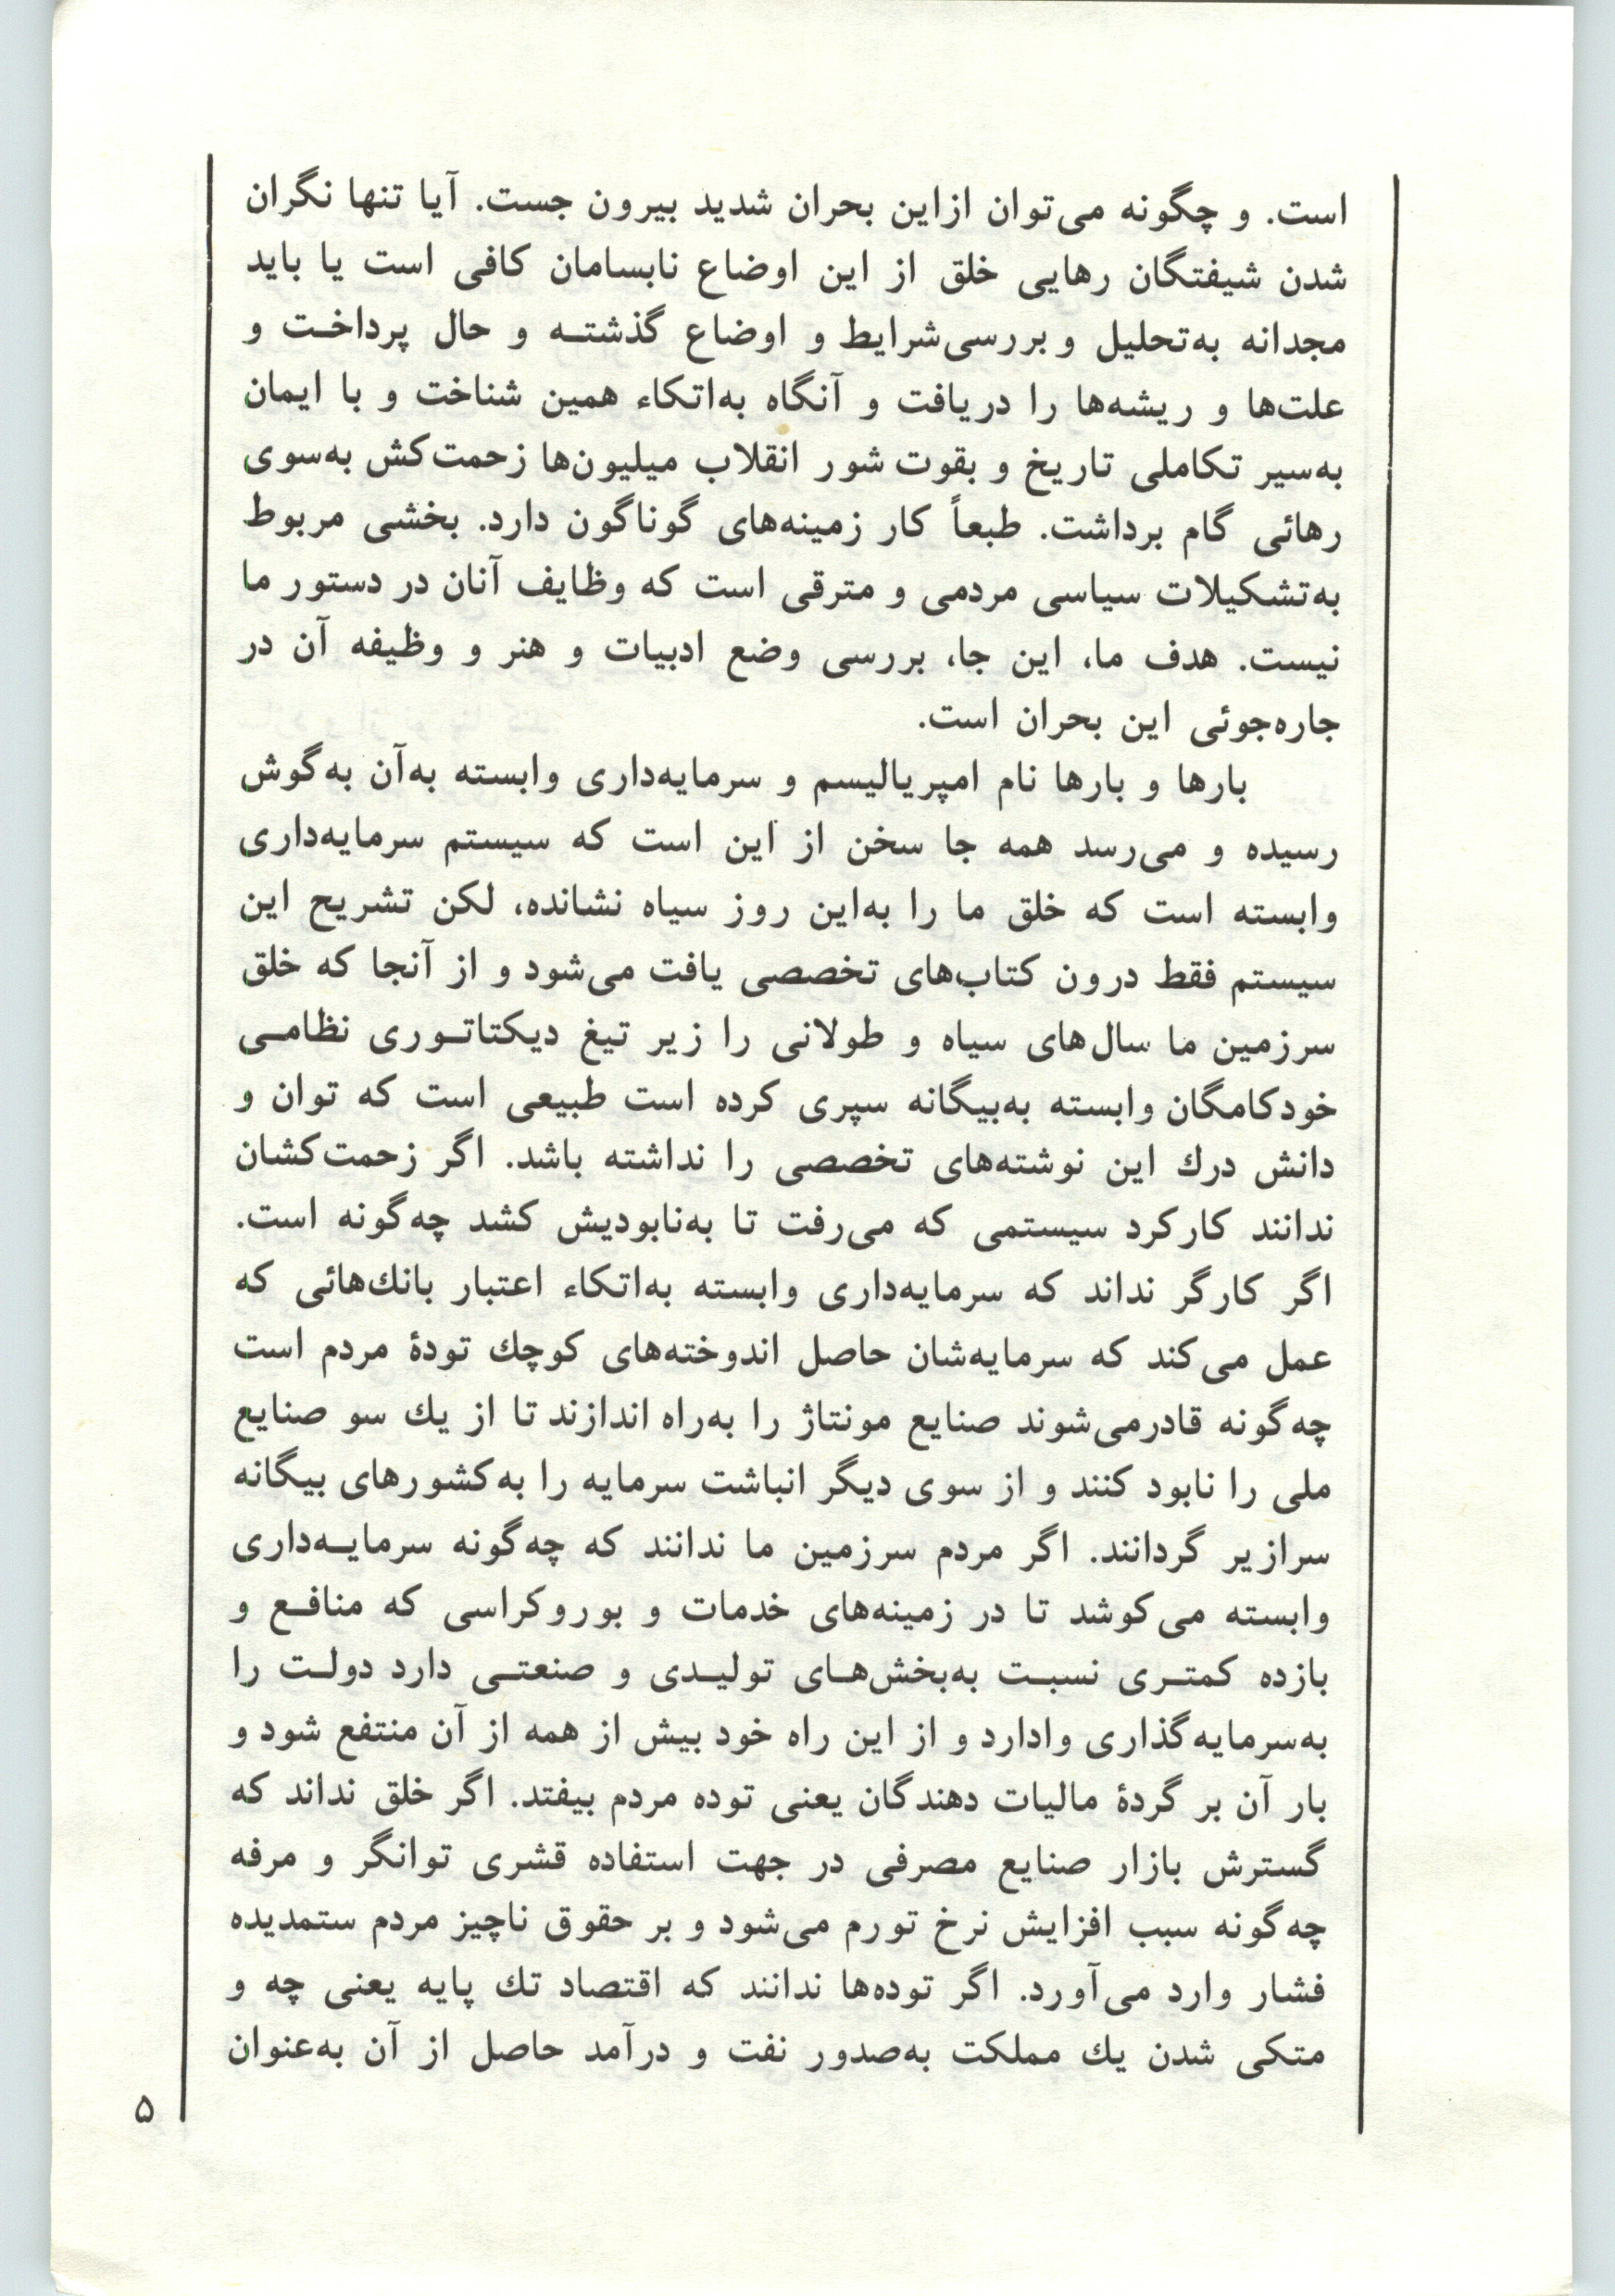 است. و چگونه می‌توان ازاین بحران شدید بیرون جست. آیا تنها نگران
شدن شیفتگان رهایی خلق از این اوضاع نابسامان کافی است یا باید
مجدانه به‌تحلیل و بررسی‌شرایط و اوضاع گذشتــه و حال پرداخـت و
علت‌ها و ریشه‌ها را دریافت و آنگاه به‌اتکاء همین شناخت و با ایمان
به‌سیر تکاملی تاریخ و بقوت شور انقلاب میلیون‌ها زحمت‌کش به‌سوی
رهائی گام برداشت. طبعاً کار زمینه‌های گوناگون دارد. بخشی مربوط
به‌تشکیلات سیاسی مردمی و مترقی است که وظایف آنان در دستور ما
نیست. هدف ما، این جا، بررسی وضع ادبیات و هنر و وظیفه آن در
جاره‌جوئی این بحران است.
بارها و بارها نام امپریالیسم و سرمایه‌داری وابسته به‌آن به‌گوش
رسیده و می‌رسد همه جا سخن از این است که سیستم سرمایه‌داری
وابسته است که خلق ما را به‌این روز سیاه نشانده، لکن تشریح این
سیستم فقط درون کتاب‌های تخصصی یافت می‌شود و از آنجا که خلق
سرزمین ما سال‌های سیاه و طولانی را زیر تیغ دیکتاتـوری نظامـی
خودکامگان وابسته به‌بیگانه سپری کرده است طبیعی است که توان و
دانش درك این نوشته‌های تخصصی را نداشته باشد. اگر زحمت‌کشان
ندانند کارکرد سیستمی که می‌رفت تا به‌نابودیش کشد چه‌گونه است.
اگر کارگر نداند که سرمایه‌داری وابسته به‌اتکاء اعتبار بانك‌هائی که
عمل می‌کند که سرمایه‌شان حاصل اندوخته‌های کوچك تودهٔ مردم است
چه‌گونه قادرمی‌شوند صنایع مونتاژ را به‌راه اندازند تا از یك سو صنایع
ملی را نابود کنند و از سوی دیگر انباشت سرمایه را به‌کشورهای بیگانه
سرازیر گردانند. اگر مردم سرزمین ما ندانند که چه‌گونه سرمایـه‌داری
وابسته می‌کوشد تا در زمینه‌های خدمات و بوروکراسی که منافـع و
بازده کمتـری نسبـت به‌بخش‌هـای تولیـدی و صنعتـی دارد دولـت را
به‌سرمایه‌گذاری وادارد و از این راه خود بیش از همه از آن منتفع شود و
بار آن بر گردهٔ مالیات دهندگان یعنی توده مردم بیفتد. اگر خلق نداند که
گسترش بازار صنایع مصرفی در جهت استفاده قشری توانگر و مرفه
چه‌گونه سبب افزایش نرخ تورم می‌شود و بر حقوق ناچیز مردم ستمدیده
فشار وارد می‌آورد. اگر توده‌ها ندانند که اقتصاد تك پایه یعنی چه و
متکی شدن یك مملکت به‌صدور نفت و درآمد حاصل از آن به‌عنوان
۵